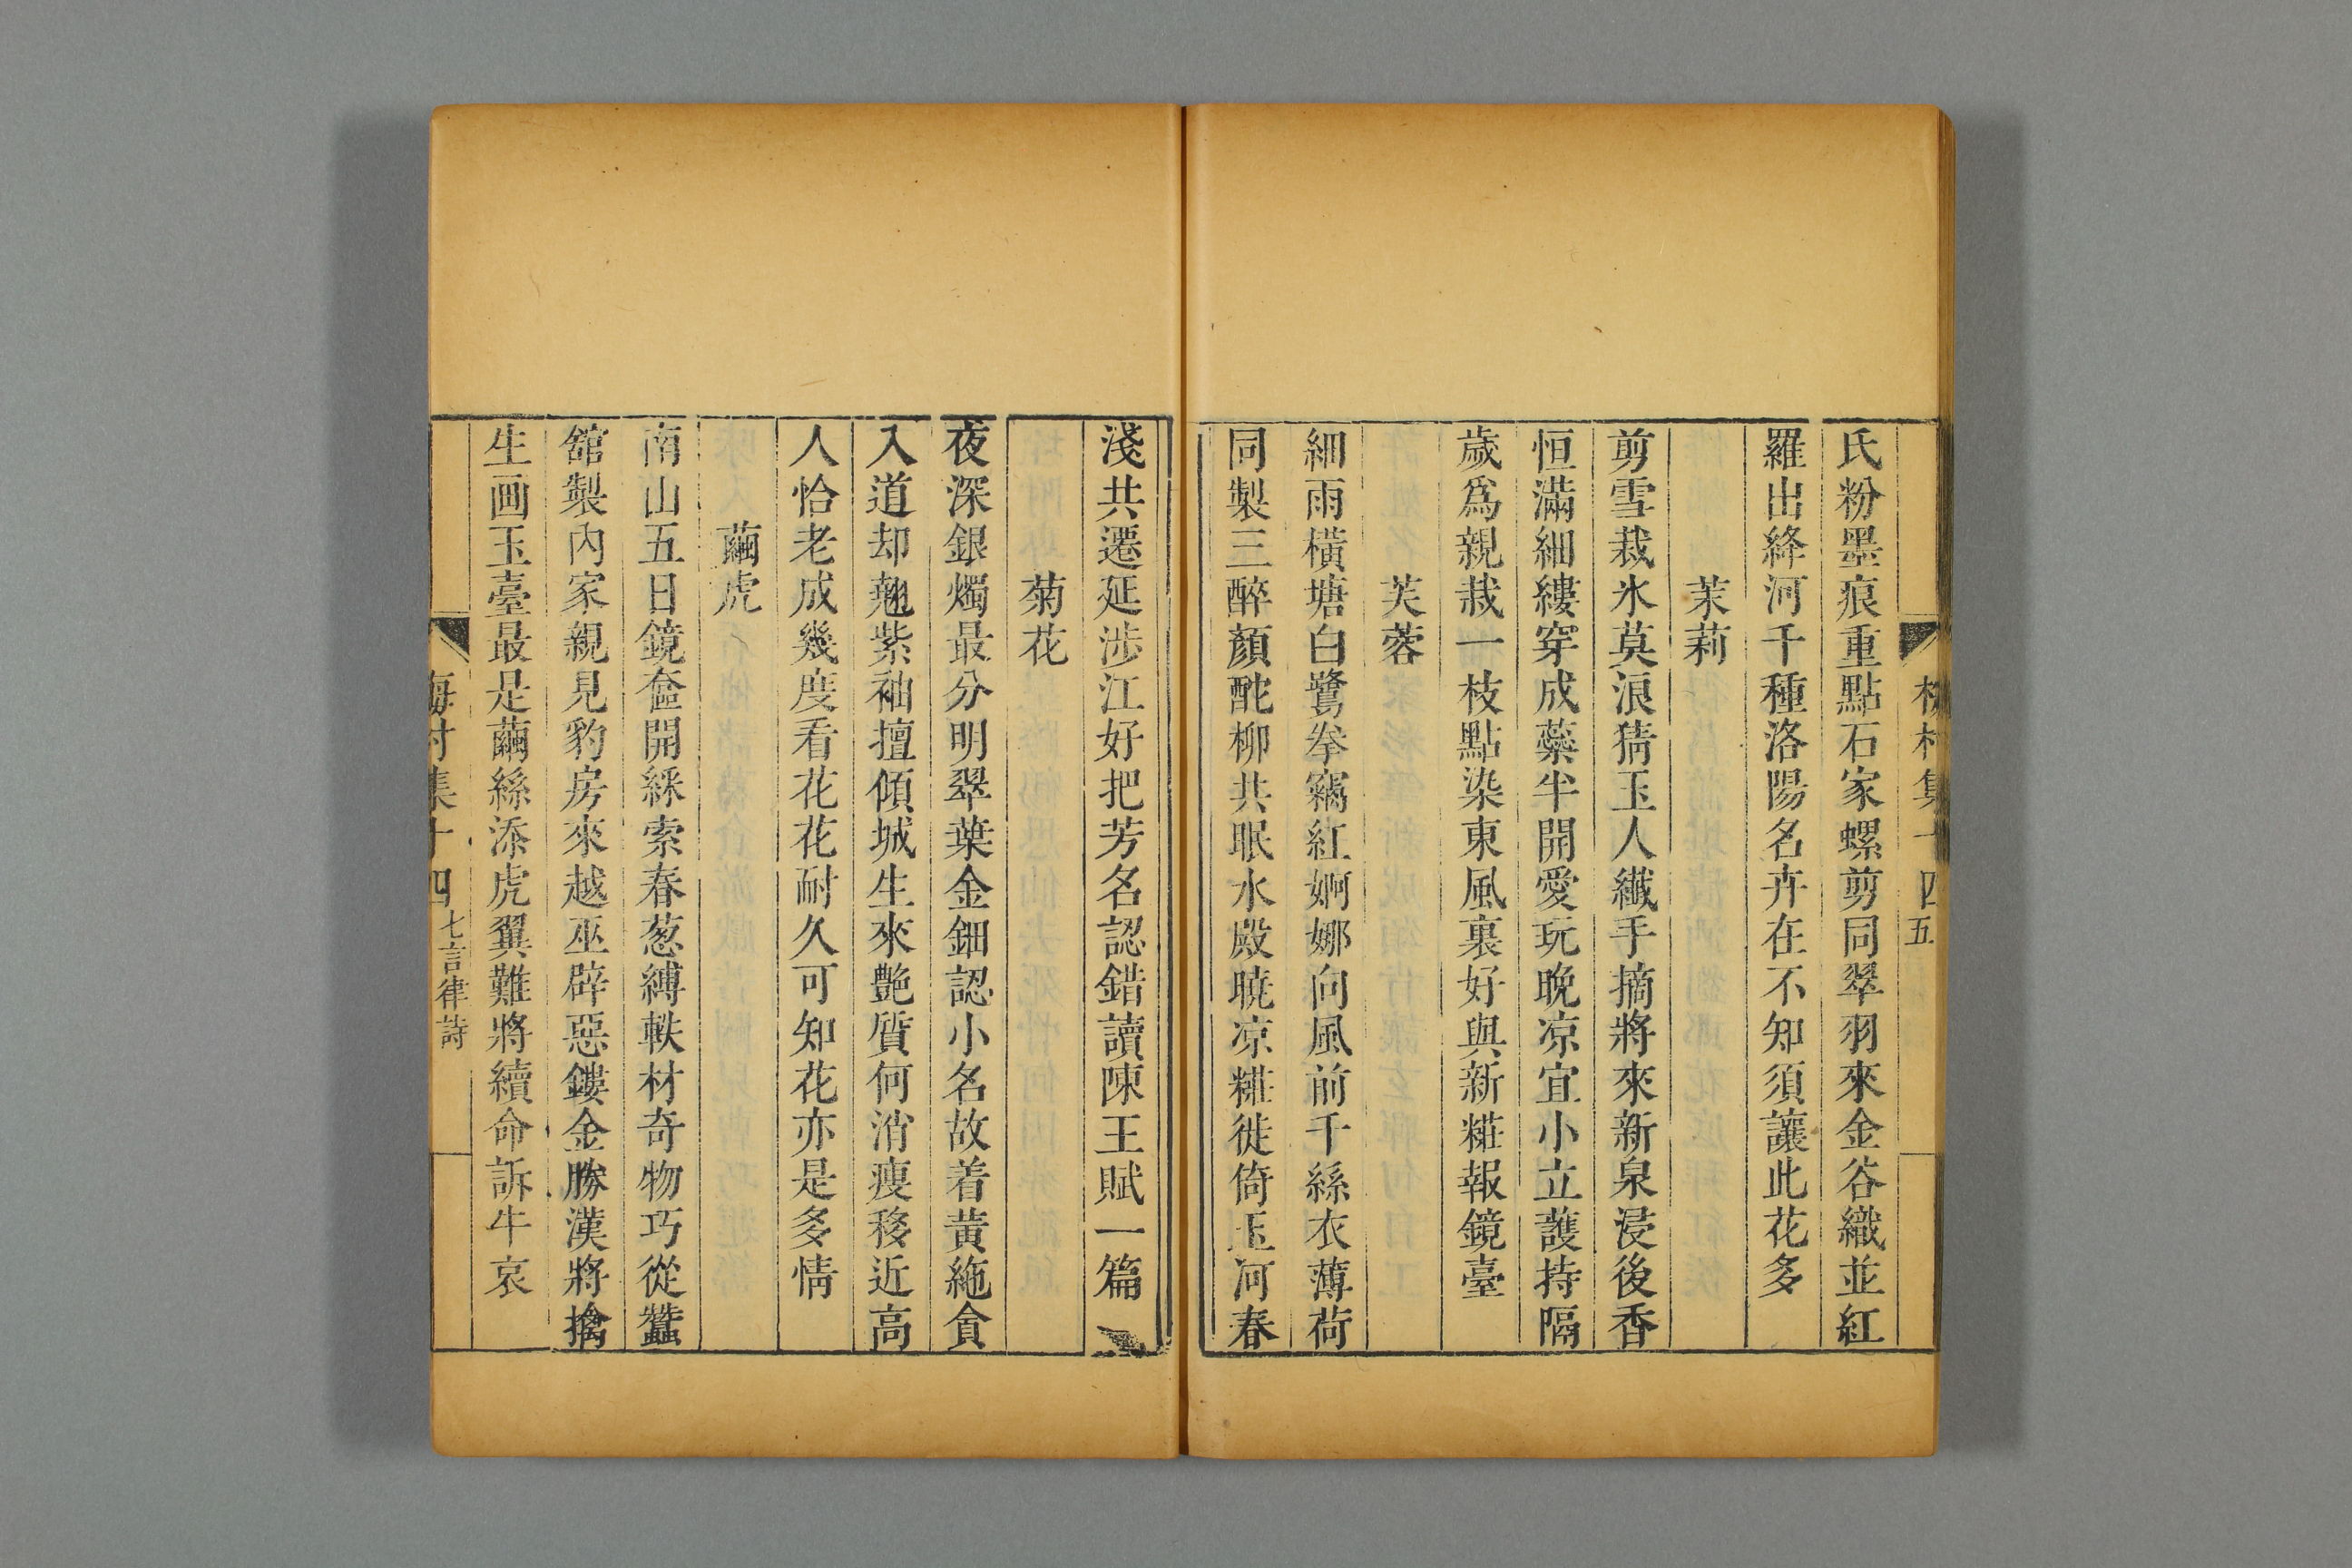 梅村集十四 五
氏粉墨痕重點石家螺剪同翠羽來金谷織並紅
羅出絳河千種洛陽名卉在不知須讓此花多
茉莉
剪雪裁氷莫浪猜玉人纖手摘將來新泉浸後香
恒滿細縷穿成蘂半開愛玩晚凉宜小立護持隔
歲爲親栽一枝點染東風裏好與新糚報鏡臺
芙蓉
細雨橫塘白鷺拳竊紅婀娜向風前千絲衣薄荷
同製三醉顏酡柳共眠水殿曉凉糚徙倚玉河春
淺共遷延涉江好把芳名認錯讀陳王賦一篇
菊花
夜深銀燭最分明翠葉金鈿認小名故着黄絁貪
入道却翹紫袖擅傾城生來艷質何消瘦移近高
人恰老成幾度看花花耐久可知花亦是多情
繭虎
南山五日鏡奩開綵索春葱縛軼材奇物巧從蠶
舘製內家親見豹房來越巫辟惡鏤金勝漢將擒
生画玉臺最是繭絲添虎翼難將續命訴牛哀
梅村集十四 七言律詩